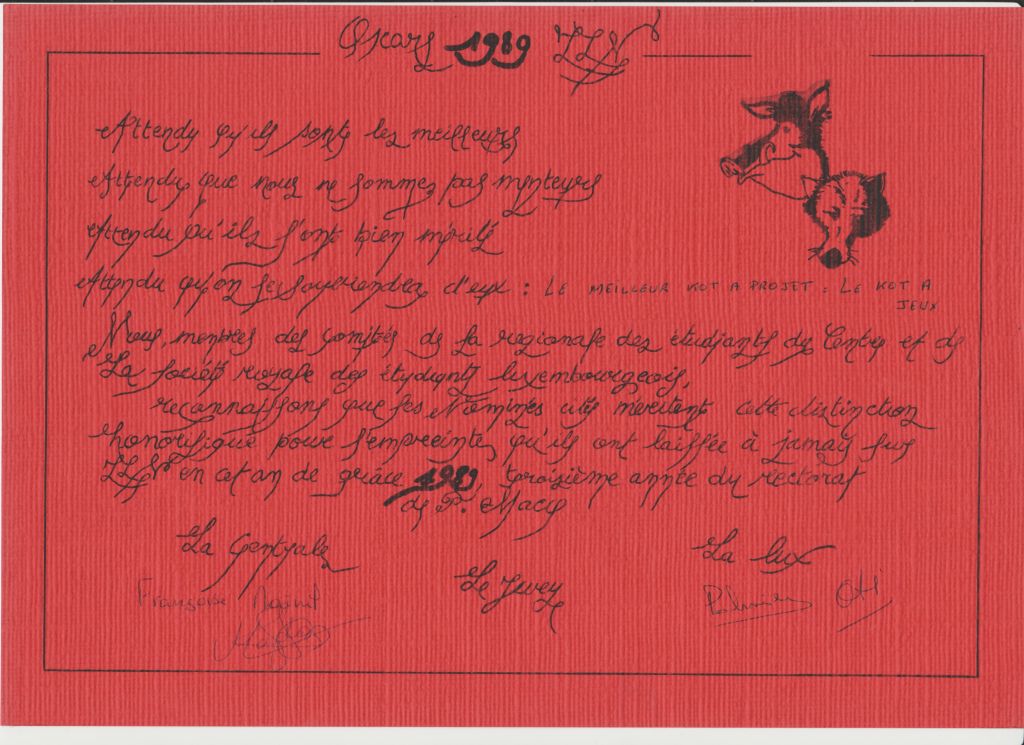 Oskars 1989 LLN
Attendu qu'ils sont les meilleurs
Attendu que nous ne sommes pas menteurs
Attendu qu'ils l'ont bien mérité
Attendu qu'on se souviendra d'eux : LE MEILLEUR KOT A PROJET : LE KOT A
JEUX
Nous, membres des Comités de la regionale des étudiants du Centre et de
La société royale des étudiants luxembourgeois,
reconnaissons que les Nominés cités méritent cette distinction
honorifique pour l'empreinte qu'ils ont laissée à jamais sur
LLN en cet an de grâce 1989, troisième année du rectorat
de P. Macq
La Centrale
La Lux
Le Jury
Françoise